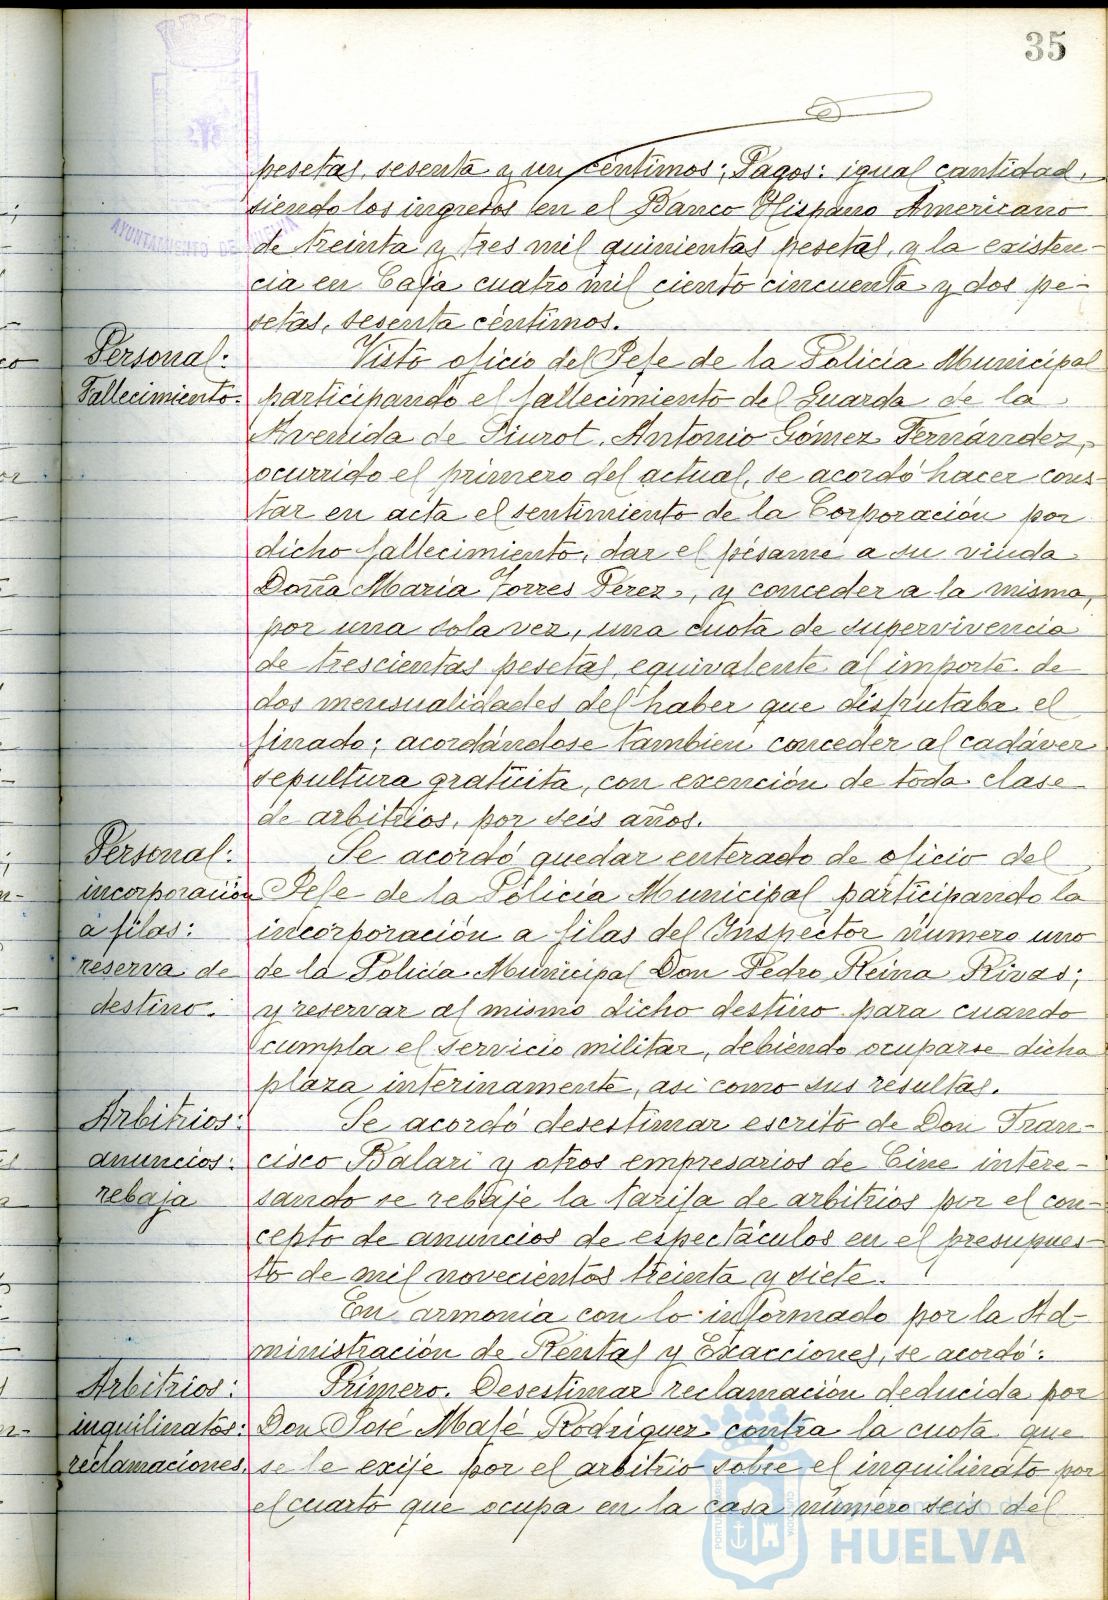 35
AYUNTAMIENTO DE HUELVA
pesetas, sesenta y un céntimos; Pagos: igual cantidad,
siendo los ingresos en el Banco Hispano Americano
de treinta y tres mil quinientas pesetas, y la existen-
cia en Caja cuatro mil ciento cincuenta y dos pe-
setas, sesenta céntimos.
Personal:
Fallecimiento.
Visto oficio del Jefe de la Policía Municipal
participando el fallecimiento del Guarda de la
Avenida de Siurot, Antonio Gómez Fernández,
ocurrido el primero del actual, se acordó hacer cons-
tar en acta el sentimiento de la Corporación por
dicho fallecimiento, dar el pésame a su viuda
Doña María Torres Pérez, y conceder a la misma,
por una sola vez, una cuota de supervivencia
de trescientas pesetas, equivalente al importe de
dos mensualidades del haber que disfrutaba el
finado; acordándose también conceder al cadáver
sepultura gratuita, con exención de toda clase
de arbitrios, por seis años.
Personal:
incorporación
a filas:
reserva de
destino.
Se acordó quedar enterado de oficio del
Jefe de la Policía Municipal participando la
incorporación a filas del Inspector número uno
de la Policía Municipal Don Pedro Reina Rivas;
y reservar al mismo dicho destino para cuando
cumpla el servicio militar, debiendo ocuparse dicha
plaza interinamente, así como sus resultas.
Arbitrios:
anuncios:
rebaja
Se acordó desestimar escrito de Don Fran-
cisco Balari y otros empresarios de Cine intere-
sando se rebaje la tarifa de arbitrios por el con-
cepto de anuncios de espectáculos en el presupues-
to de mil novecientos treinta y siete.
En armonía con lo informado por la Ad-
ministración de Rentas y Exacciones, se acordó:
Arbitrios:
inquilinatos:
reclamaciones.
Primero. Desestimar reclamación deducida por
Don José Mafé Rodríguez contra la cuota que
se le exije por el arbitrio sobre el inquilinato por
el cuarto que ocupa en la casa número seis del
HUELVA